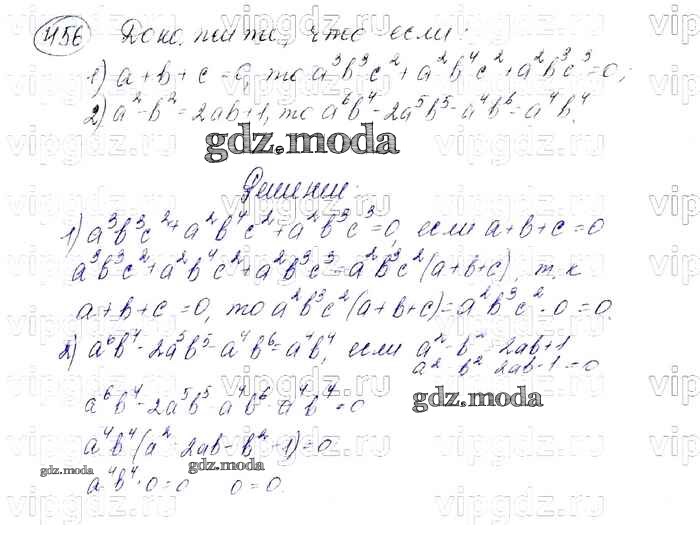 456 Доказать, что если:
1) a+b+c=0, то a³b³c²+a²b⁴c²+a²b³c³=0;
2) a²-b²=2ab+1, то a⁶b⁴-2a⁵b⁵-a⁴b⁶=a⁴b⁴.
gdz.moda
Решение:
1) a³b³c²+a²b⁴c²+a²b³c³=0, если a+b+c=0
a³b³c²+a²b⁴c²+a²b³c³=a²b³c²(a+b+c), т.к
a+b+c=0, то a²b³c²(a+b+c)=a²b³c²·0=0.
2) a⁶b⁴-2a⁵b⁵-a⁴b⁶=a⁴b⁴, если a²-b²=2ab+1
a²-b²-2ab-1=0
a⁶b⁴-2a⁵b⁵-a⁴b⁶-a⁴b⁴=0
gdz.moda
a⁴b⁴(a²-2ab-b²-1)=0
gdz.moda gdz.moda
a⁴b⁴·0=0 0=0.
vipgdz.ru